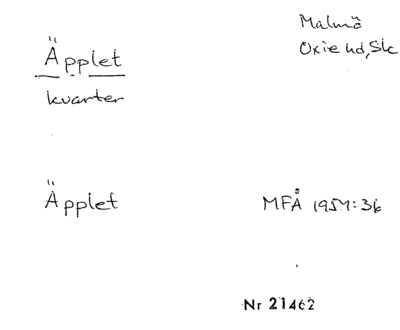 Äpplet
kvarter
Malmö
Oxie hd, Sk
Äpplet
MFÅ 1957:36
Nr 21462